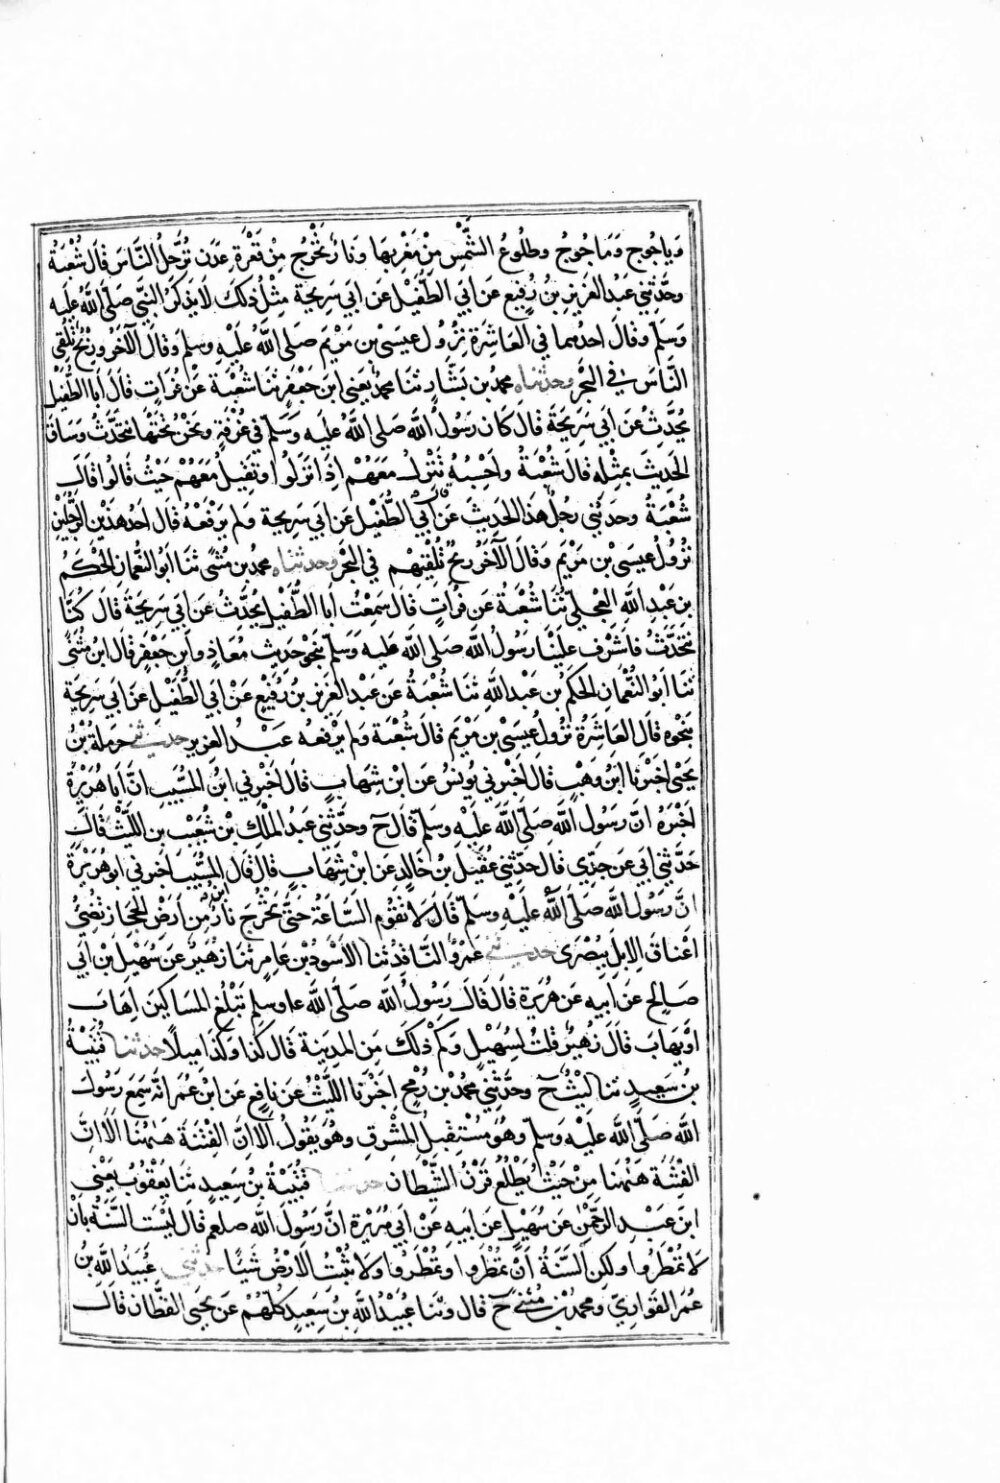 وياجوج وماجوج وطلوع الشمس من مغربها ونار تخرج من قعرة عدن ترحل الناس قال شعبة
وحدثني عبد العزيز بن رفيع عن ابي الطفيل عن ابي سريحة مثل ذلك لا يذكر النبي صلى الله عليه
وسلم وقال احدهما في العاشرة نزول عيسى بن مريم صلى الله عليه وسلم وقال الآخر وريح تلقي
الناس في البحر وحدثناه محمد بن بشار ثنا محمد يعني ابن جعفر ثنا شعبة عن فرات قال ابا الطفيل
يحدث عن ابي سريحة قال كان رسول الله صلى الله عليه وسلم في غرفة ونحن تحتها نتحدث وساق
الحديث بمثله قال شعبة واحسبه تنزل معهم اذا نزلوا وتقيل معهم حيث قالوا قال
شعبة وحدثني رجل هذا الحديث عن ابي الطفيل عن ابي سريحة ولم يرفعه قال احد هذين الرجلين
نزول عيسى بن مريم وقال الآخر ريح تلقيهم في البحر وحدثناه محمد بن مثنى ثنا ابو النعمان الحكم
بن عبد الله العجلي ثنا شعبة عن فرات قال سمعت ابا الطفيل يحدث عن ابي سريحة قال كنا
نتحدث فاشرف علينا رسول الله صلى الله عليه وسلم بنحو حديث معاذ وابن جعفر قال ابن مثنى
ثنا ابو النعمان الحكم بن عبد الله ثنا شعبة عن عبد العزيز بن رفيع عن ابي الطفيل عن ابي سريحة
بنحوه قال العاشرة نزول عيسى بن مريم قال شعبة ولم يرفعه عبد العزيز حدثني حرملة بن
يحيى اخبرنا ابن وهب قال اخبرني يونس عن ابن شهاب قال اخبرني ابن المسيب ان ابا هريرة
اخبره ان رسول الله صلى الله عليه وسلم قال ح وحدثني عبد الملك بن شعيب بن الليث قال
حدثني ابي عن جدي قال حدثني عقيل بن خالد عن ابن شهاب قال قال ابن المسيب اخبرني ابو هريرة
ان رسول الله صلى الله عليه وسلم قال لا تقوم الساعة حتى تخرج نار من ارض الحجاز تضيئ
اعناق الابل ببصرى حدثني عمرو الناقد ثنا الاسود بن عامر ثنا زهير عن سهيل بن ابي
صالح عن ابيه عن هريرة قال قال رسول الله صلى الله عليه وسلم تبلغ المساكين اهاب
او يهاب قال زهير قلت لسهيل وكم ذلك من المدينة قال كذا وكذا ميلا حدثنا قتيبة
بن سعيد ثنا ليث ح وحدثني محمد بن رمح اخبرنا الليث عن نافع عن ابن عمر انه سمع رسول
الله صلى الله عليه وسلم وهو مستقبل المشرق وهو يقول الا ان الفتنة ههنا الا ان
الفتنة ههنا من حيث يطلع قرن الشيطان حدثنا قتيبة بن سعيد ثنا يعقوب يعني
ابن عبد الرحمن عن سهيل عن ابيه عن ابي هريرة ان رسول الله صلعم قال ليست السنة بان
لا تمطروا ولكن السنة ان تمطروا وتمطروا ولا تنبت الارض شيئا حدثني عبيد الله بن
عمر القواريري ومحمد بن مثنى ح قال وثنا عبيد الله بن سعيد كلهم عن يحيى القطان قال